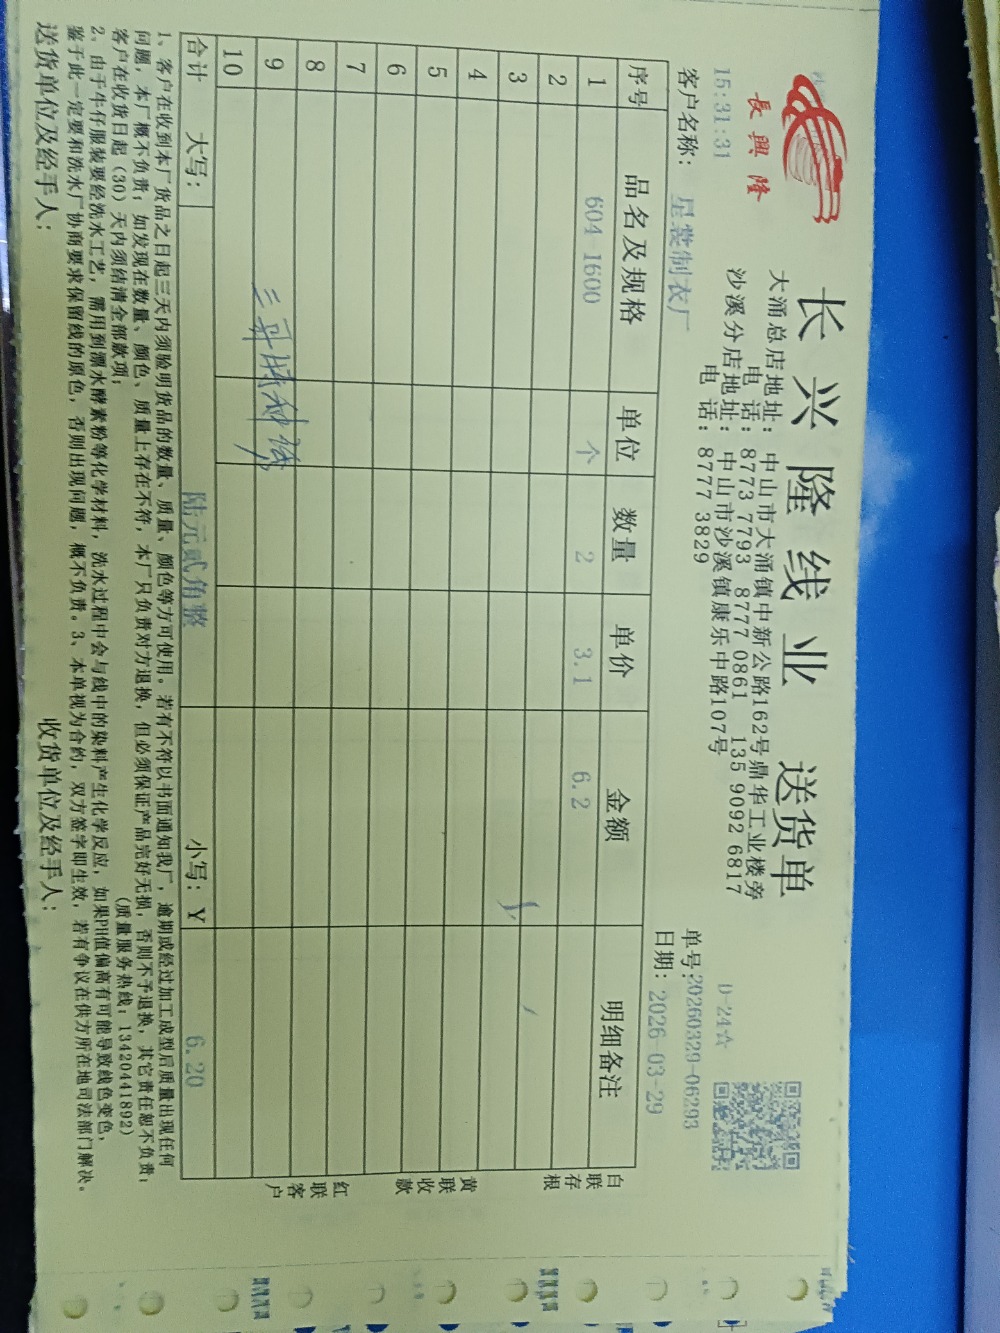 長興隆
长兴隆线业 送货单
大涌总店地址：中山市大涌镇中新公路162号鼎华工业楼旁
电话：8773 7793 8777 0861 135 9092 6817
沙溪分店地址：中山市沙溪镇康乐中路107号
电话：8777 3829
15:31:31
D-24☆
单号:20260329-06293
客户名称：星裳制衣厂
日期：2026-03-29
序号 品名及规格 单位 数量 单价 金额 明细备注
1 604-1600 个 2 3.1 6.2
2
3
4
5
6
7
8
9
10
合计 大写： 陆元贰角整 小写：￥ 6.20
白联存根
黄联收款
红联客户
1、客户在收到本厂货品之日起三天内须验明货品的数量、质量、颜色等方可使用。若有不符以书面通知我厂，逾期或经过加工成型后质量出现任何
问题，本厂概不负责；如发现在数量、颜色、质量上存在不符，本厂只负责对方退换，但必须保证产品完好无损，否则不予退换，其它责任恕不负责；
客户在收货日起（30）天内须结清全部款项； （质量服务热线：13420441892）
2、由于牛仔服装要经洗水工艺，需用到漂水酵素粉等化学材料，洗水过程中会与线中的染料产生化学反应，如果PH值偏高有可能导致线色变色，
鉴于此一定要和洗水厂协商要求保留线的原色，否则出现问题，概不负责。3、本单视为合约，双方签字即生效，若有争议在供方所在地司法部门解决。
送货单位及经手人： 收货单位及经手人：